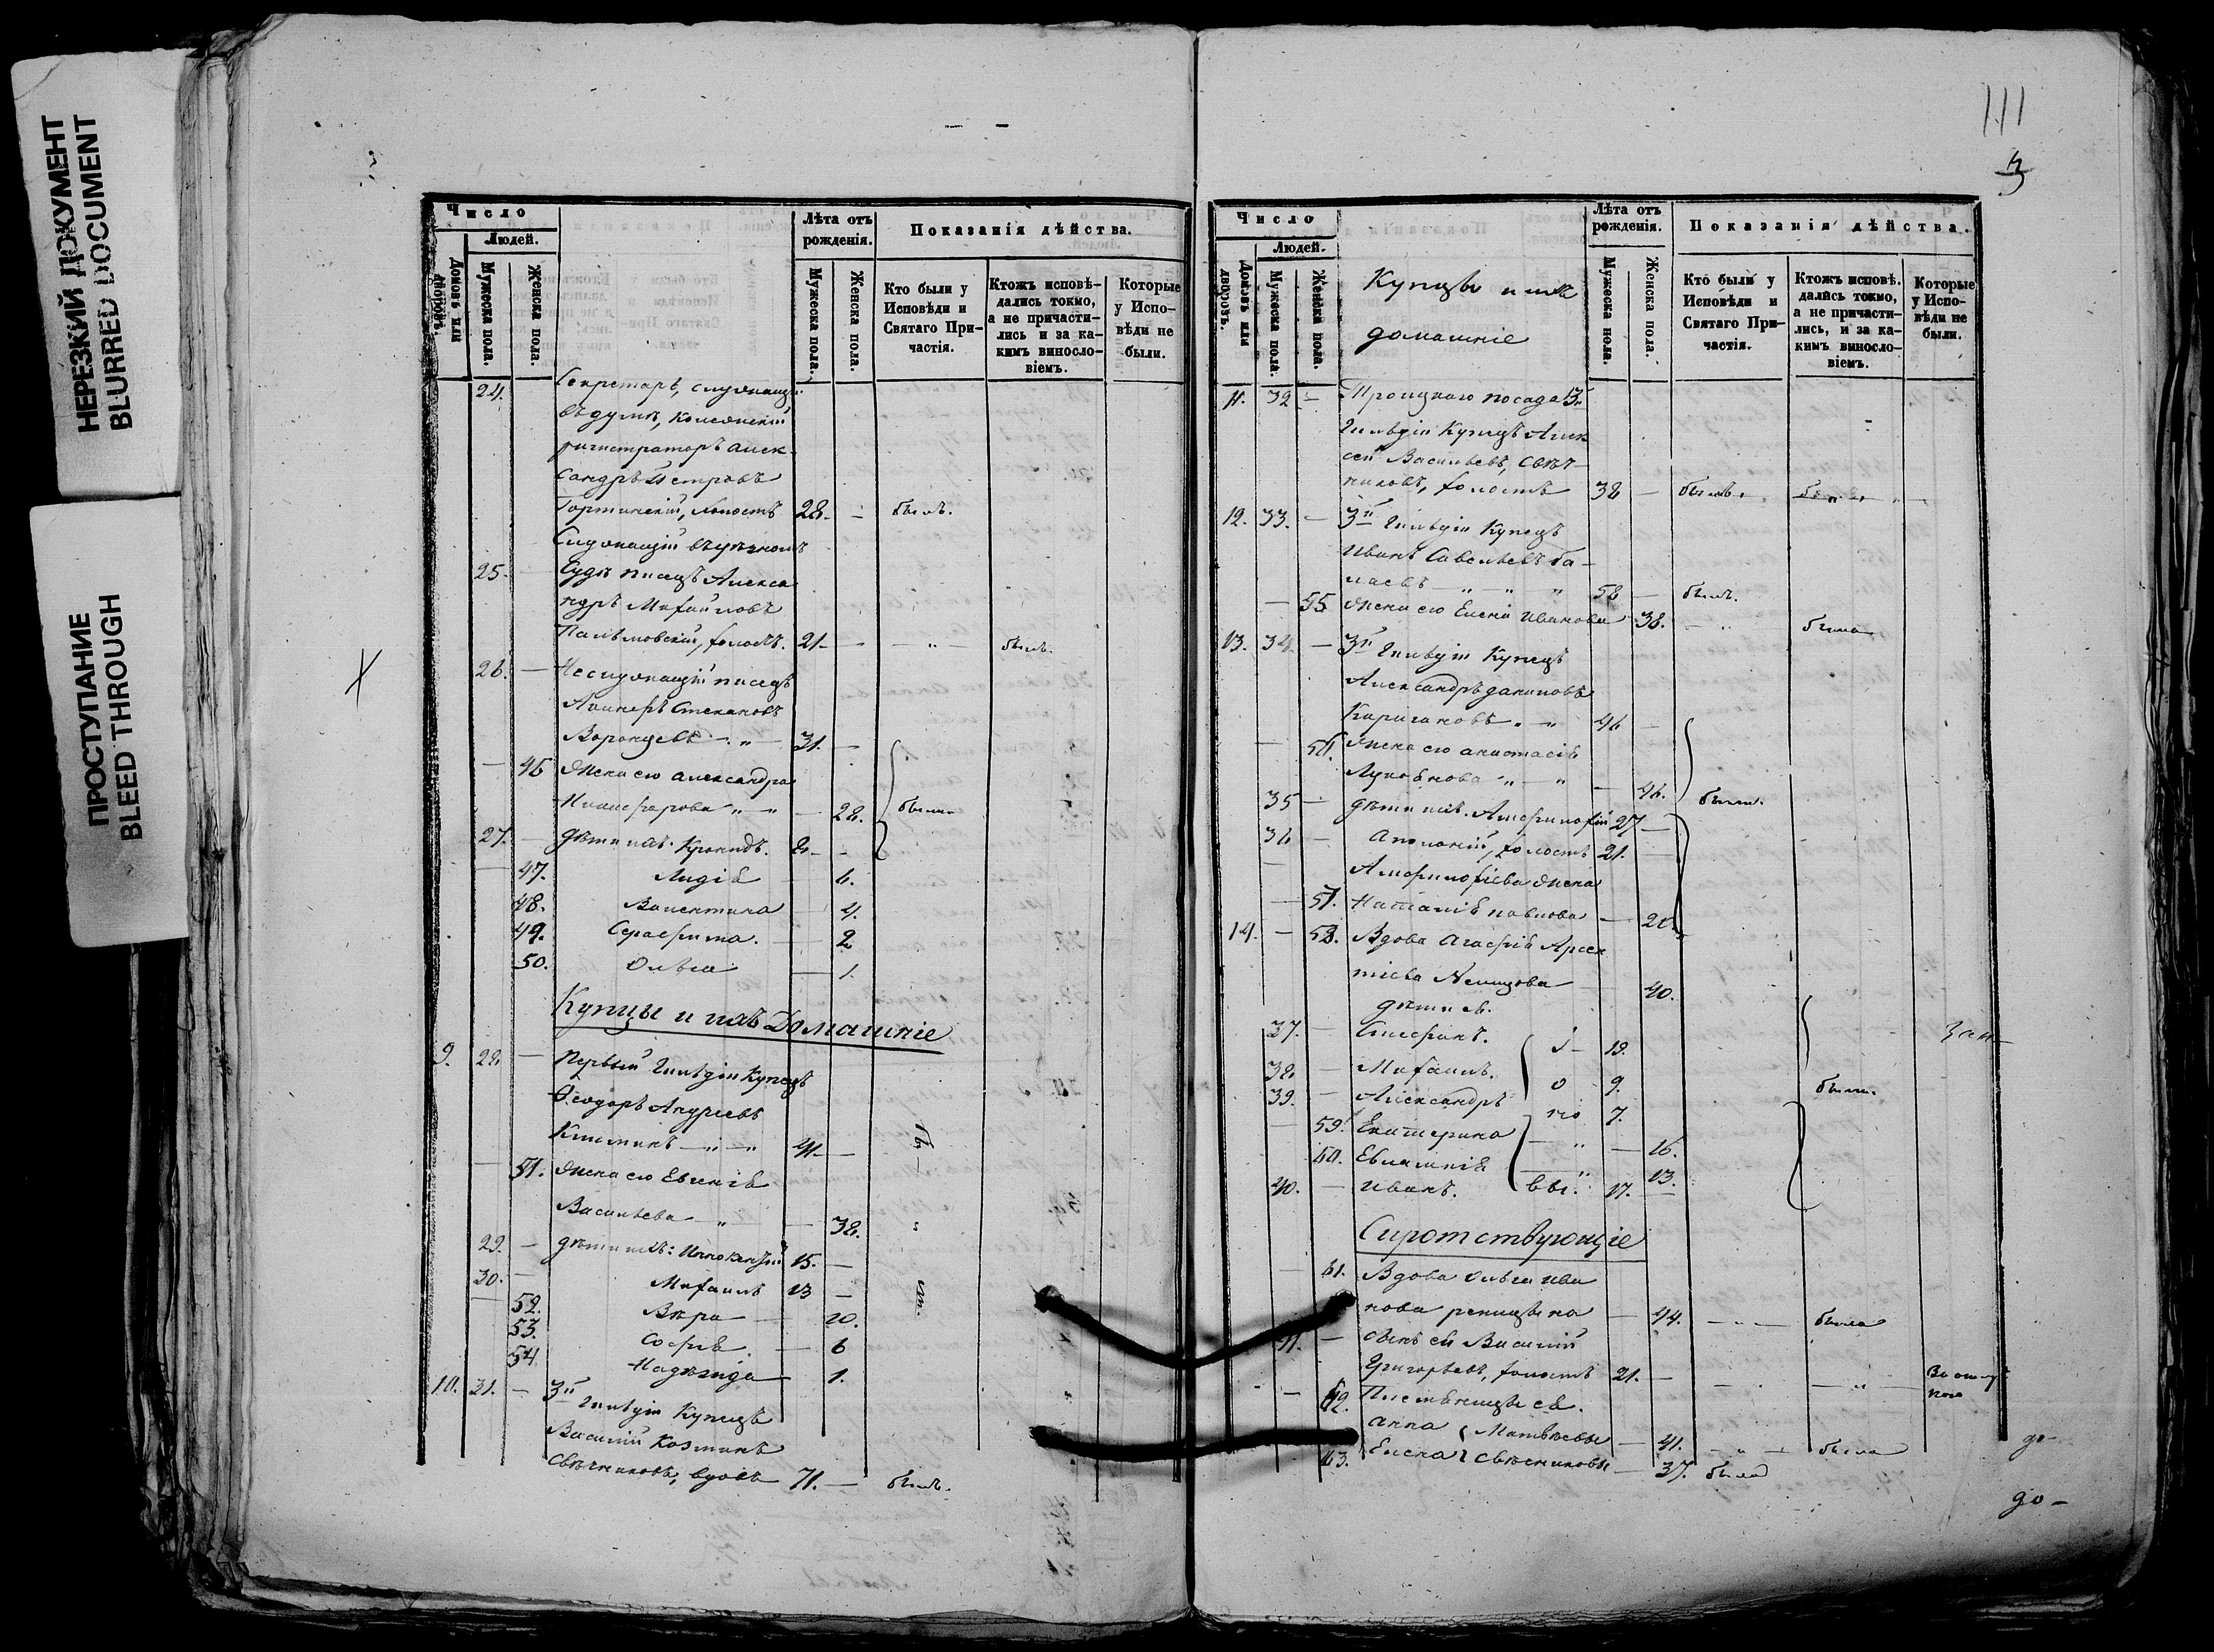 НЕРЕЗКИЙ ДОКУМЕНТ
BLURRED DOCUMENT
ПРОСТУПАНИЕ
BLEED THROUGH
Число
Людей.
Домовъ или дворовъ.
Мужеска пола.
Женска пола.
Лѣта отъ рожденія.
Мужеска пола.
Женска пола.
Показанія дѣйства.
Кто были у Исповѣди и Святаго Причастія.
Ктожъ исповѣдались токмо, а не причастились и за какимъ винословіемъ.
Которые у Исповѣди не были.
24. Секретарь, служащій
въ думѣ, Коллежскій
регистраторъ Алек-
сандръ Петровъ
холостъ 28. — былъ.
Служащій въ уѣзномъ
25. — Судѣ писецъ Алекса
ндръ Михайловъ
холостъ. 21. — — " — былъ.
26. — Неслужащій писецъ
Степановъ
Воронцовъ — " — 31. —
— 46 Жена его Александра
Никифорова " — " — 28. были
27. — Дѣти ихъ: Кронидъ. 8. —
47. Лидія — 6.
48. Валентина — 4.
49. Серафима. — 2
50. Ольга — 1.
Купцы и ихъ Домашніе
9. 28 — Первый Гильдіи Купецъ
Ѳеодоръ Андреевъ
Климинъ — " — " 41 — бы —
— 51. Жена его Евгенія
Васильева — " — 38.
29. — Дѣти ихъ: Иннокентій 15. —
30. — Михаилъ 13 — ли.
52. Вѣра — 10.
53. Софія. — 6
54 Надежда — 1.
10. 31. — 3й Гильдіи Купецъ
Василій Козминъ
Свѣчниковъ, вдовъ 71. — былъ.
111
Число
Людей.
Домовъ или дворовъ.
Мужеска пола.
Женска пола.
Купцы и ихъ
домашніе
Лѣта отъ рожденія.
Мужеска пола.
Женска пола.
Показанія дѣйства.
Кто были у Исповѣди и Святаго Причастія.
Ктожъ исповѣдались токмо, а не причастились, и за какимъ винословіемъ.
Которые у Исповѣди не были.
11. 32 — Троицкаго посада 3й
Гильдіи Купецъ Алек
сей Васильевъ, Свѣч-
никовъ, холостъ 38 — былъ.
12. 33. — 3й Гильдіи Купецъ
Иванъ Савельевъ
— " — " 58 — былъ.
— 55. Жена его Елена Иванова 38. — " была
13. 34 — 3й Гильдіи Купецъ
Александръ Даниловъ
46 —
— 56. Жена его Анастасія
Лукоянова " — " — 46.
35 — Дѣти ихъ: Амфилохій 27 — были.
36 — Аполоній, холостъ 21. —
Амфилохіева жена
— 57. Наталія Павлова — 20
14. — 58. Вдова Агафія Арсен
тіева — 40.
Дѣти ея.
37. — Стефанъ. 19.
38. — Михаилъ. 9.
39. — Александръ 7. были.
— 59. Екатерина — " — 16.
60. Евлампія — " 13.
40. — Иванъ. вы. 17. —
Сиротствующіе
— 61. Вдова Ольга Ива
нова — 44. — " — была
41. — Сынъ ея Василій
Григорьевъ, холостъ 21. — — — " —
— 62. Племянницы ея.
Анна Матвѣевы — 41. — " — была
63. Елена Свѣчниковы — 37. была
до —